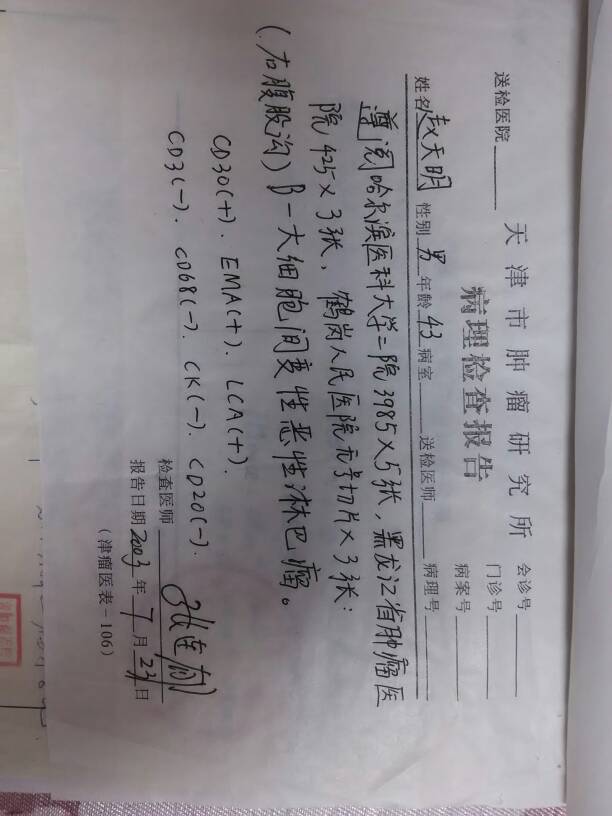 天津市肿瘤研究所
病理检查报告
会诊号
门诊号
病案号
送检医院
姓名 赵天明 性别 男 年龄 43 病室 送检医师 病理号
尊阅哈尔滨医科大学二院3985×5张，黑龙江省肿瘤医
院425×3张，鹤岗人民医院无号切片×3张：
（右腹股沟）B-大细胞间变性恶性淋巴瘤。
CD30(+). EMA(+). LCA(+).
CD3(-). CD68(-). CK(-). CD20(-).
检查医师
报告日期 2003 年 7 月 23 日
（津瘤医表－106）